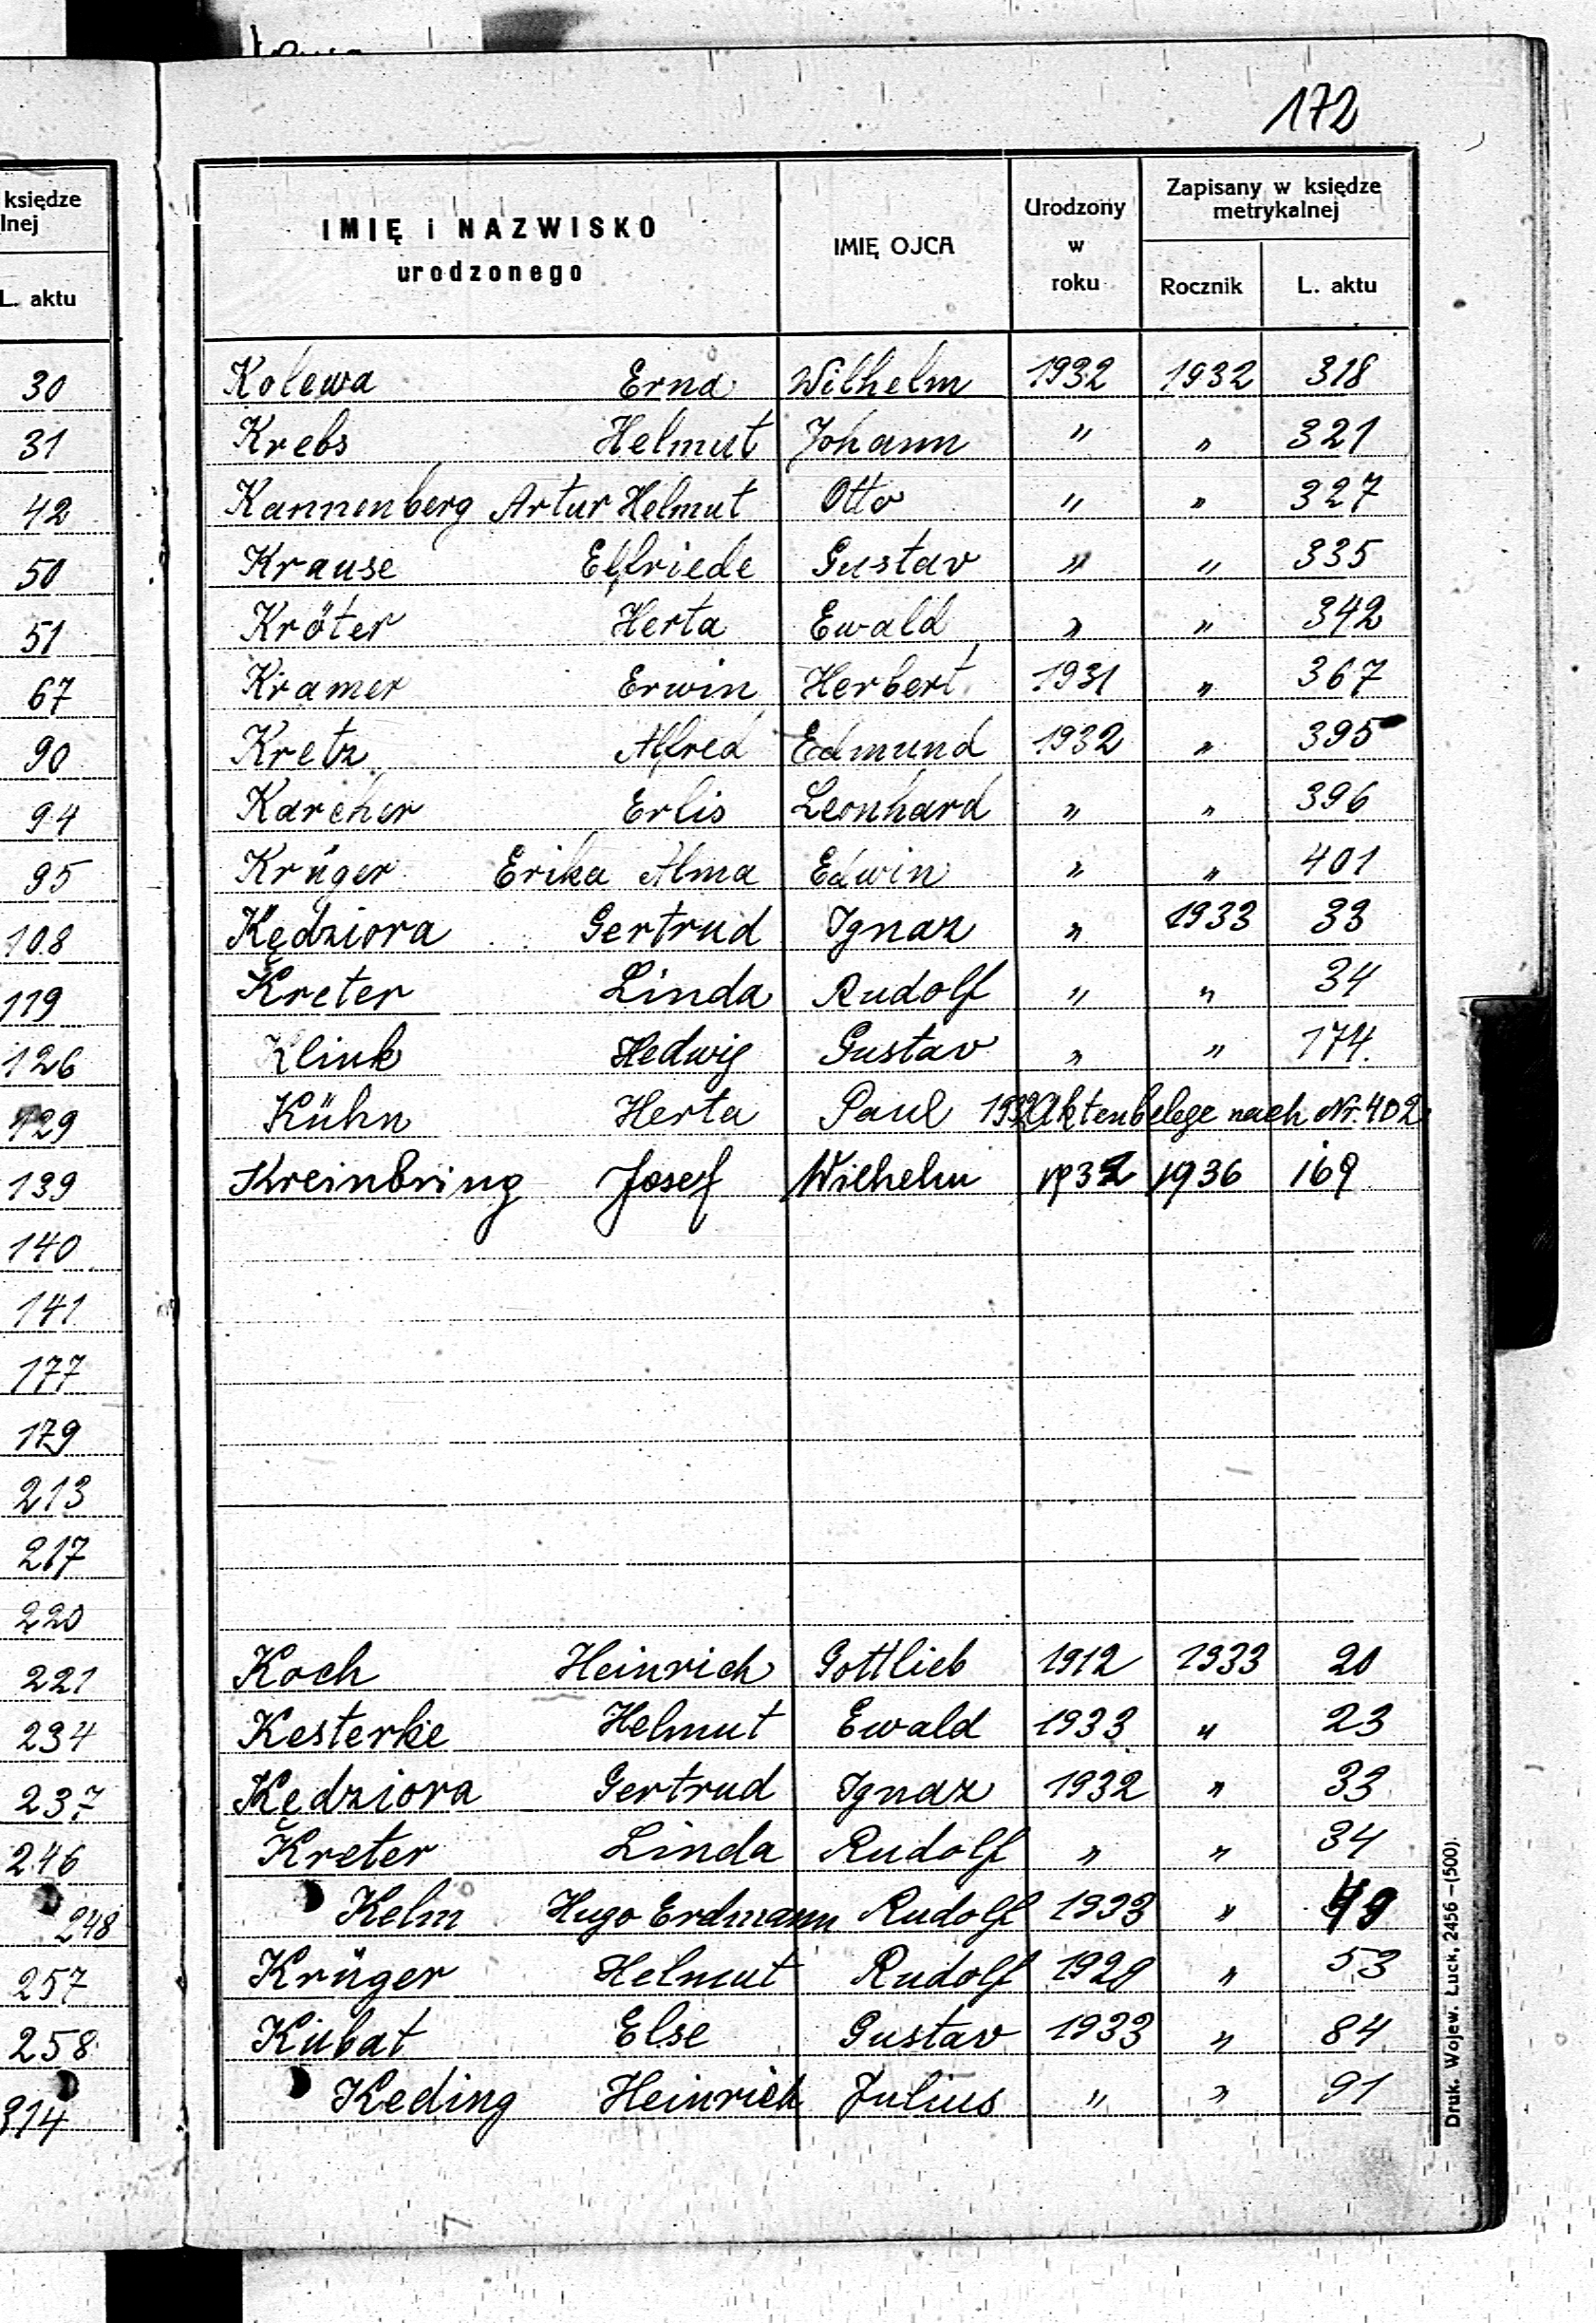 172
księdze
lnej
L. aktu
30
31
42
50
51
67
90
94
95
108
119
126
129
139
140
141
177
179
213
217
220
221
234
237
246
248
257
258
314
IMIĘ i NAZWISKO urodzonego IMIĘ OJCA Urodzony w roku Zapisany w księdze metrykalnej
Rocznik L. aktu
Kolewa Erna Wilhelm 1932 1932 318
Krebs Helmut Johann " " 321
Kannenberg Artur Helmut Otto " " 327
Krause Elfriede Gustav " " 335
Kröter Herta Ewald " " 342
Kramer Erwin Herbert 1931 " 367
Kretz Alfred Edmund 1932 " 395
Karcher Erlis Leonhard " " 396
Krüger Erika Alma Edwin " " 401
Kędziora Gertrud Ignaz " 1933 33
Kreter Linda Rudolf " " 34
Klink Hedwig Gustav " " 174.
Kühn Herta Paul 1932 Aktenbelege nach Nr. 402
Kreinbring Josef Wilhelm 1932 1936 169
Koch Heinrich Gottlieb 1912 1933 20
Kesterke Helmut Ewald 1933 " 23
Kędziora Gertrud Ignaz 1932 " 33
Kreter Linda Rudolf " " 34
Kelm Hugo Erdmann Rudolf 1933 " 49
Krüger Helmut Rudolf 1929 " 53
Kubat Else Gustav 1933 " 84
Keding Heinrich Julius " " 91
Druk. Wojew. Łuck, 2456 –(500).